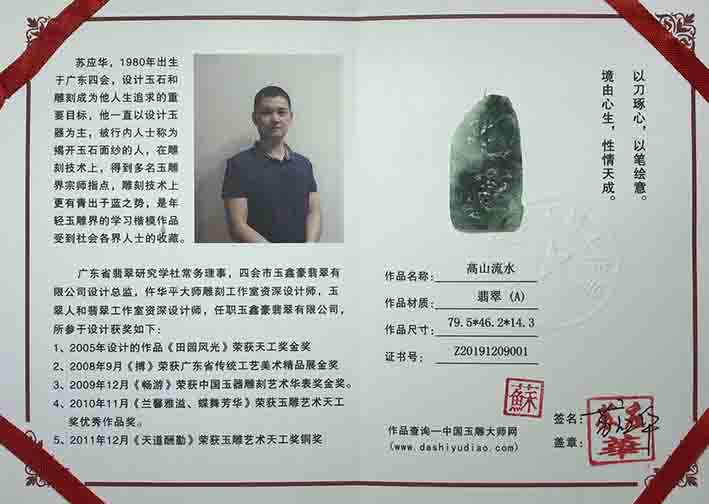 苏应华，1980年出生
于广东四会，设计玉石和
雕刻成为他人生追求的重
要目标，他一直以设计玉
器为主，被行内人士称为
揭开玉石面纱的人，在雕
刻技术上，得到多名玉雕
界宗师指点，雕刻技术上
更有青出于蓝之势，是年
轻玉雕界的学习楷模作品
受到社会各界人士的收藏。
广东省翡翠研究学社常务理事，四会市玉鑫豪翡翠有
限公司设计总监，仵华平大师雕刻工作室资深设计师，玉
翠人和翡翠工作室资深设计师，任职玉鑫豪翡翠有限公司，
所参于设计获奖如下：
1、2005年设计的作品《田园风光》荣获天工奖金奖
2、2008年9月《搏》荣获广东省传统工艺美术精品展金奖
3、2009年12月《畅游》荣获中国玉器雕刻艺术华表奖金奖。
4、2010年11月《兰馨雅溢、蝶舞芳华》荣获玉雕艺术天工
奖优秀作品奖。
5、2011年12月《天道酬勤》荣获玉雕艺术天工奖铜奖
以刀琢心，以笔绘意。
境由心生，性情天成。
作品名称：高山流水
作品材质：翡翠（A）
作品尺寸：79.5*46.2*14.3
证书号：Z20191209001
蘇
作品查询—中国玉雕大师网
(www.dashiyudiao.com)
签名：
盖章：